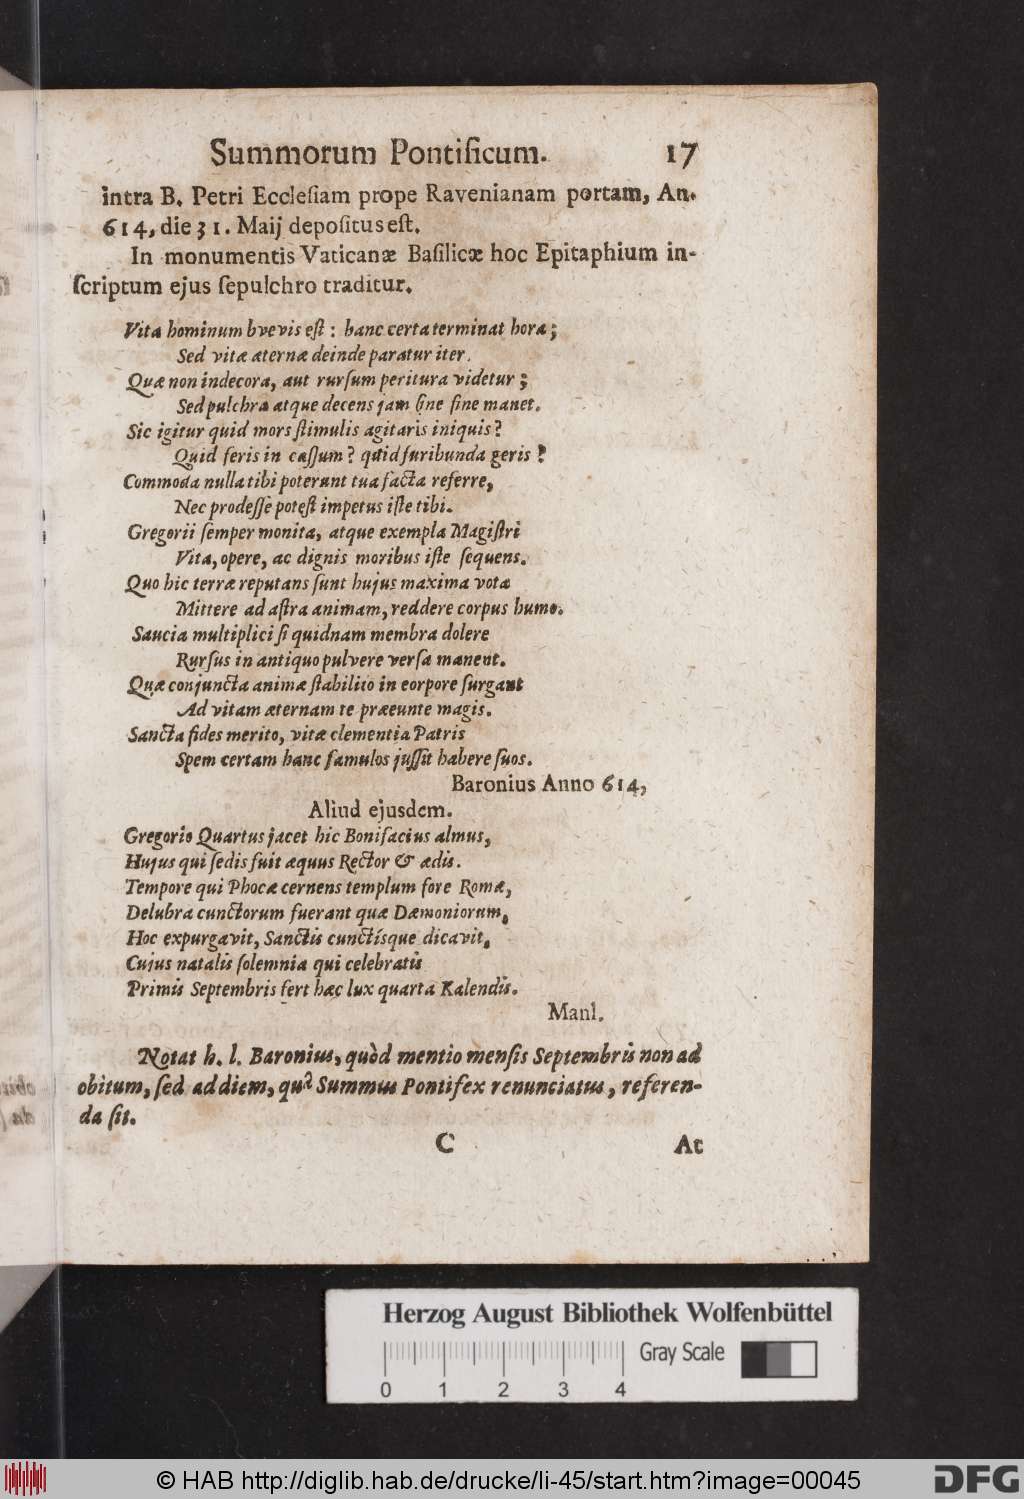 Summorum Pontificum. 17
intra B. Petri Eccleſiam prope Ravenianam portam, An.
614, die 31. Maij depoſitus eſt.
In monumentis Vaticanæ Baſilicæ hoc Epitaphium in-
ſcriptum ejus ſepulchro traditur.
Vita hominum bvevis eſt : hanc certa terminat hora ;
Sed vitæ æternæ deinde paratur iter.
Quæ non indecora, aut rurſum peritura videtur ;
Sed pulchra atque decens jam ſine fine manet.
Sic igitur quid mors ſtimulis agitaris iniquis ?
Quid feris in caſſum ? quid furibunda geris ?
Commoda nulla tibi poterunt tua facta referre,
Nec prodeſſe poteſt impetus iſte tibi.
Gregorii ſemper monita, atque exempla Magiſtri
Vita, opere, ac dignis moribus iſte ſequens.
Quo hic terræ reputans ſunt hujus maxima vota
Mittere ad aſtra animam, reddere corpus humo.
Saucia multiplici ſi quidnam membra dolere
Rurſus in antiquo pulvere verſa manent.
Quæ conjuncta animæ ſtabilito in eorpore ſurgant
Ad vitam æternam te præeunte magis.
Sancta fides merito, vitæ clementia Patris
Spem certam hanc famulos juſſit habere ſuos.
Baronius Anno 614,
Aliud ejusdem.
Gregorio Quartus jacet hic Bonifacius almus,
Hujus qui ſedis fuit æquus Rector & ædis.
Tempore qui Phocæ cernens templum fore Romæ,
Delubra cunctorum fuerant quæ Dæmoniorum,
Hoc expurgavit, Sanctis cunctísque dicavit,
Cujus natalis ſolemnia qui celebratis
Primis Septembris fert hæc lux quarta Kalendis.
Manl.
Notat h. l. Baronius, quòd mentio menſis Septembris non ad
obitum, ſed ad diem, quâ Summus Pontifex renunciatus, referen-
da ſit.
C Ac
Herzog August Bibliothek Wolfenbüttel
Gray Scale
0 1 2 3 4
© HAB http://diglib.hab.de/drucke/li-45/start.htm?image=00045
DFG